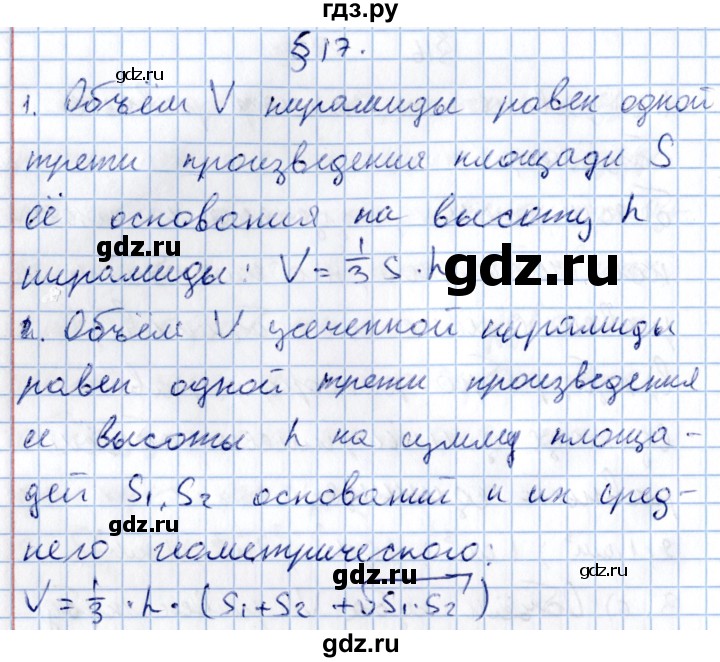 гдз.ру
§ 17.
gdz.ru
1. Объём V пирамиды равен одной
трети произведения площади S
её основания на высоту h
gdz.ru
gdz.ru
пирамиды: V = 1/3 S · h
2. Объём V усеченной пирамиды
равен одной трети произведения
ее высоты h на сумму площа-
gdz.ru
дей S1, S2 оснований и их сред-
gdz.ru
него геометрического:
gdz.ru
V = 1/3 · h · (S1 + S2 + √S1 · S2)
gdz.ru